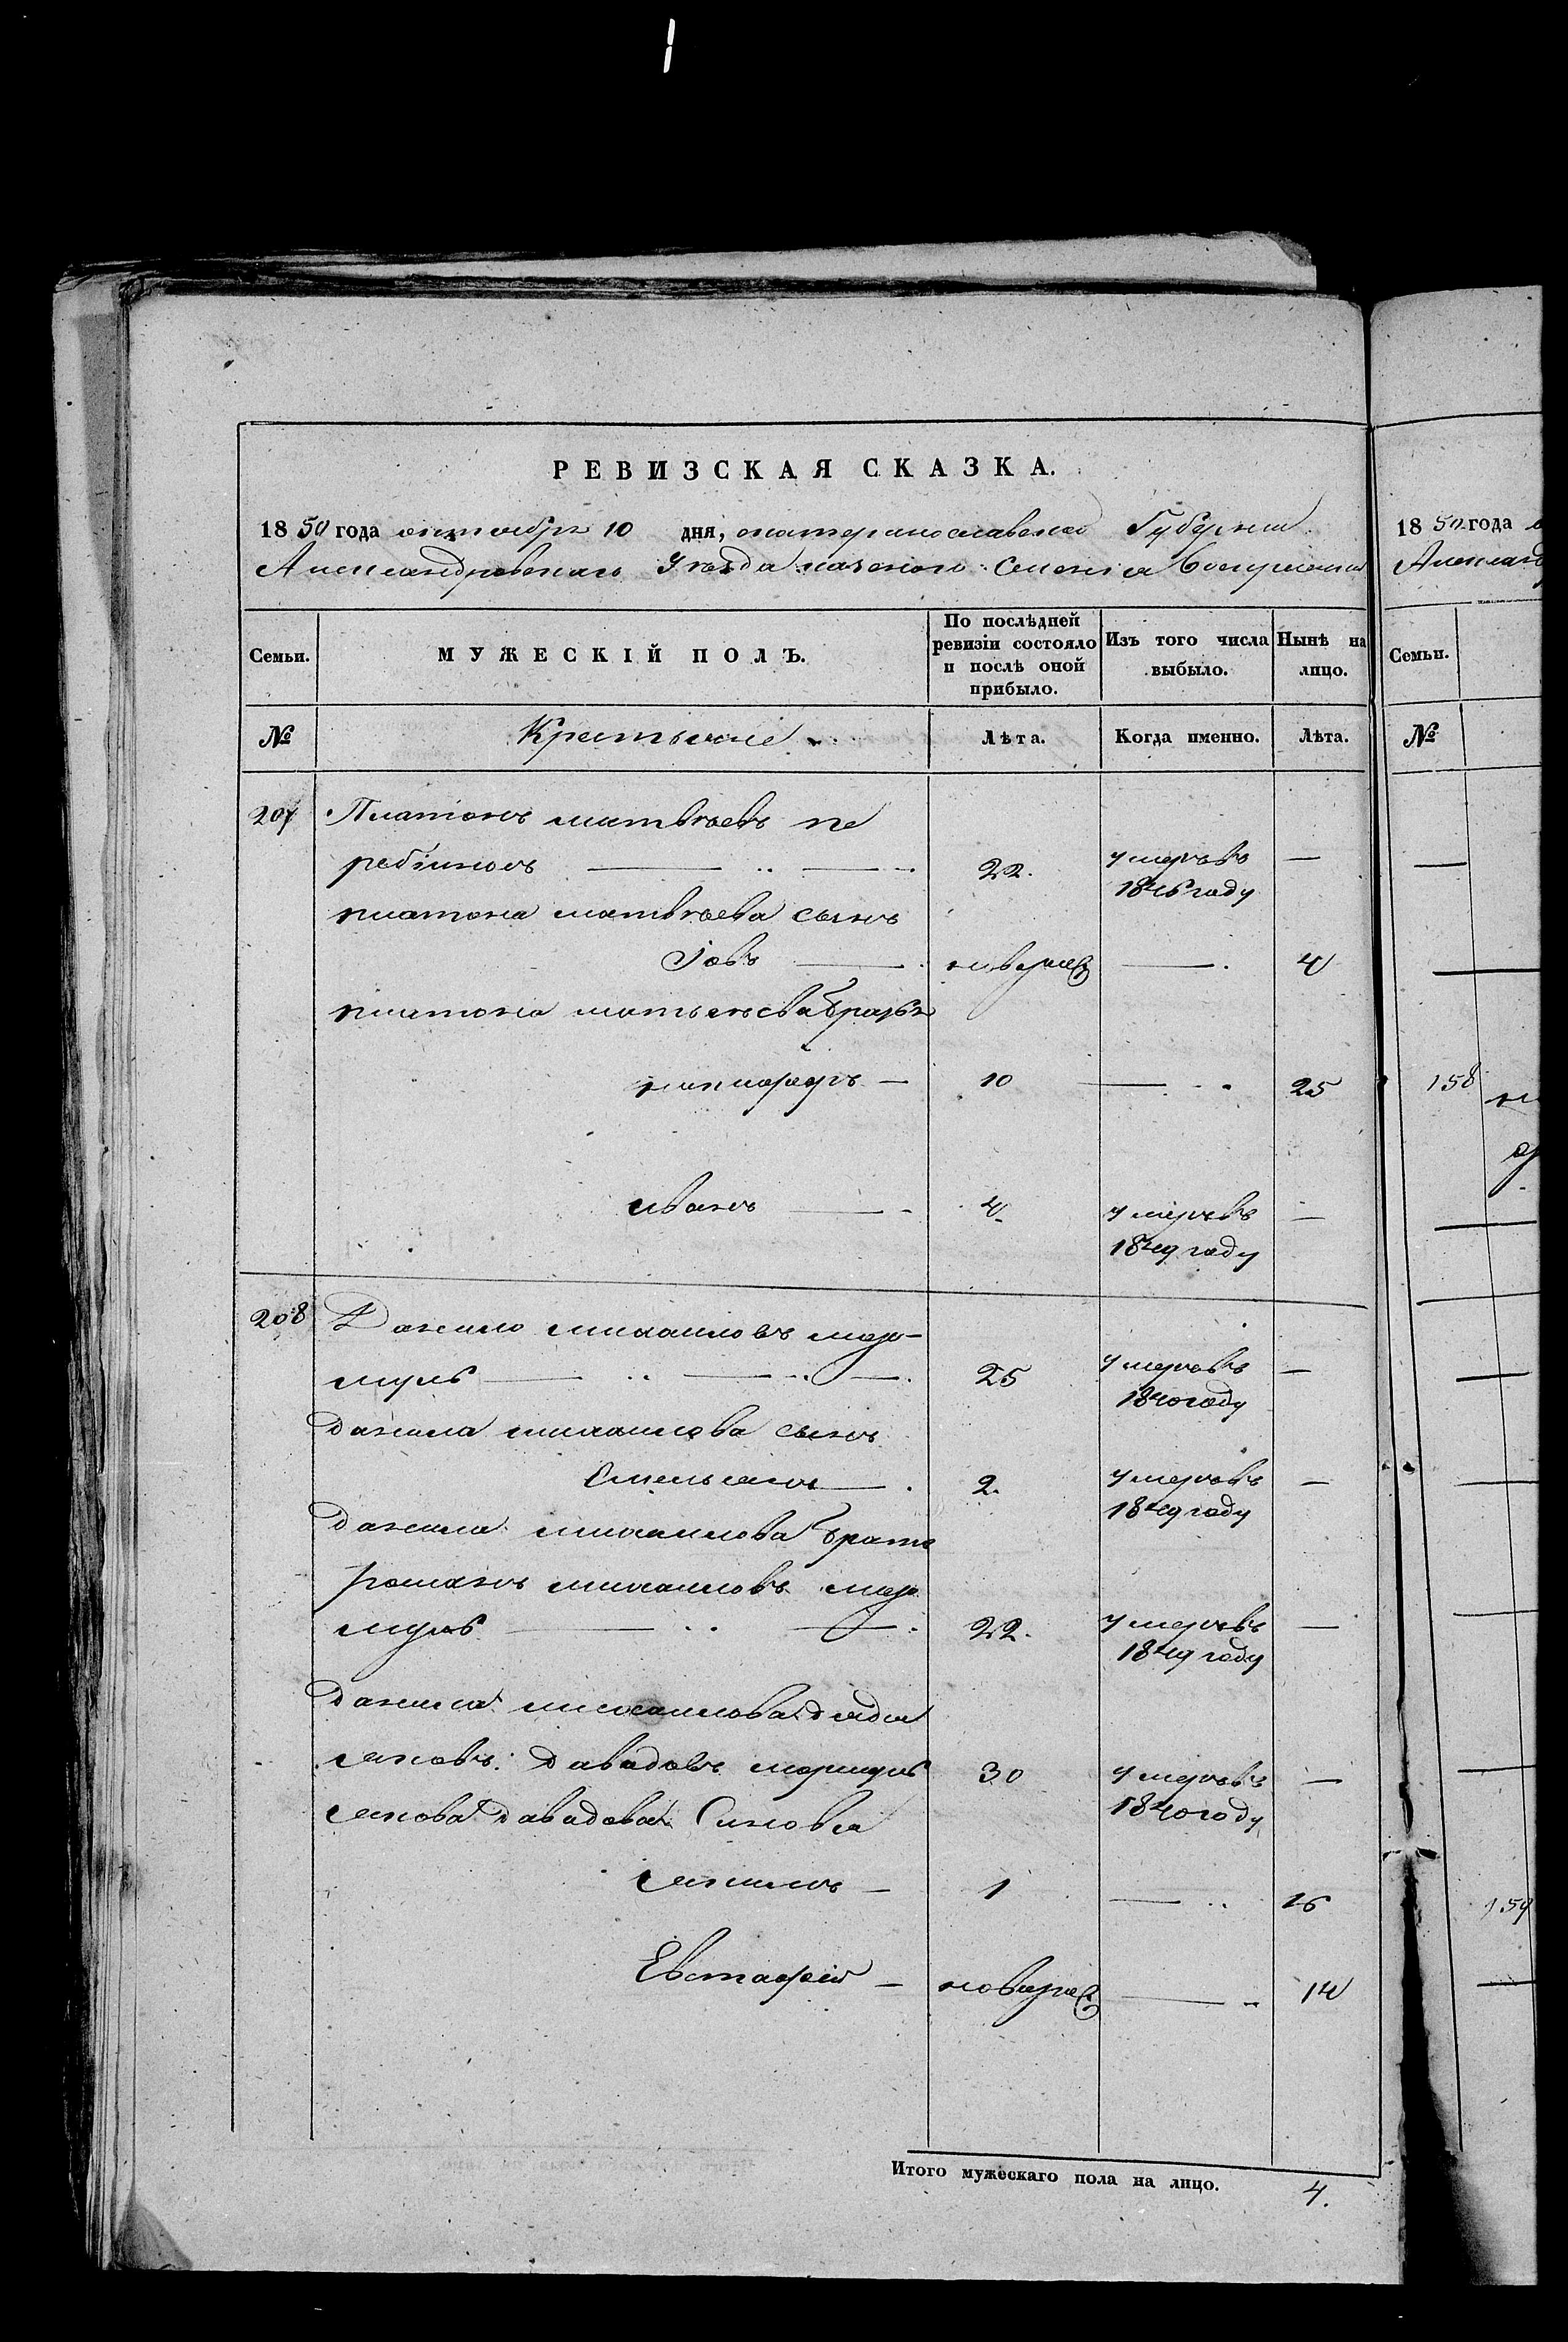 РЕВИЗСКАЯ СКАЗКА.
1850 года октобря 10 дня, екатеринославской Губернии
Александровскаго Уезда казеного Селения
Семьи.
МУЖЕСКІЙ ПОЛЪ.
По послѣдней ревизіи состояло и послѣ оной прибыло.
Изъ того числа выбыло.
Нынѣ на лицо.
№
Крестьяне
Лѣта.
Когда именно.
Лѣта.
207 Платонъ матвѣевъ пе
22. умеръ въ —
1846 году
платона матвѣева сынъ
Іовъ — новорож — 4
платона братья
никифоръ — 10 — 25
иванъ — 4. умеръ въ —
1849 году
208 Данило михаиловъ
25 умеръ въ —
1840 году
данила михаилова сынъ
Емельянъ — 2. умеръ въ —
1849 году
данила михаилова братъ
романъ михаиловъ
22. умеръ въ —
1849 году
данила михаилова дядя
яковъ давадовъ 30 умеръ въ —
1840 году
якова давадова Синовья
1 — 16
Евстафій — новорож — 14
Итого мужескаго пола на лицо. 4.
18 50 года
Александ
Семьи.
№
158
159